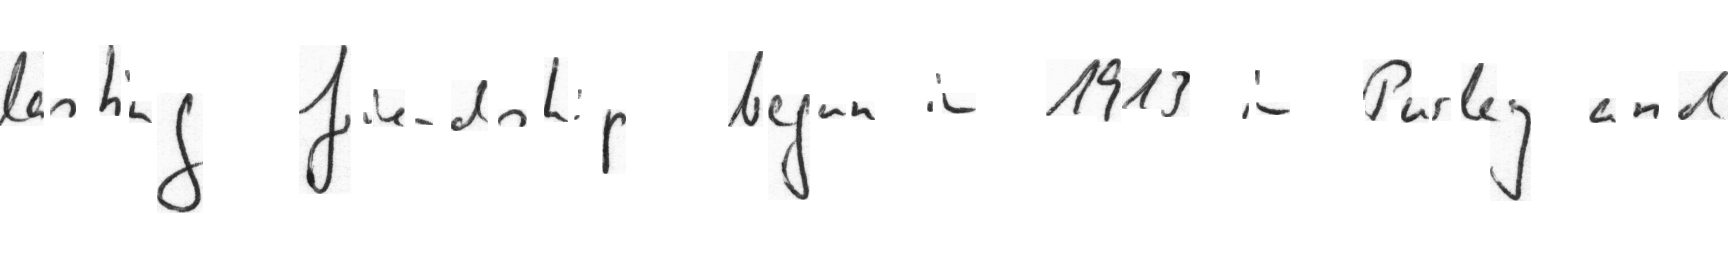 lasting friendship begun in 1913 in Purley and